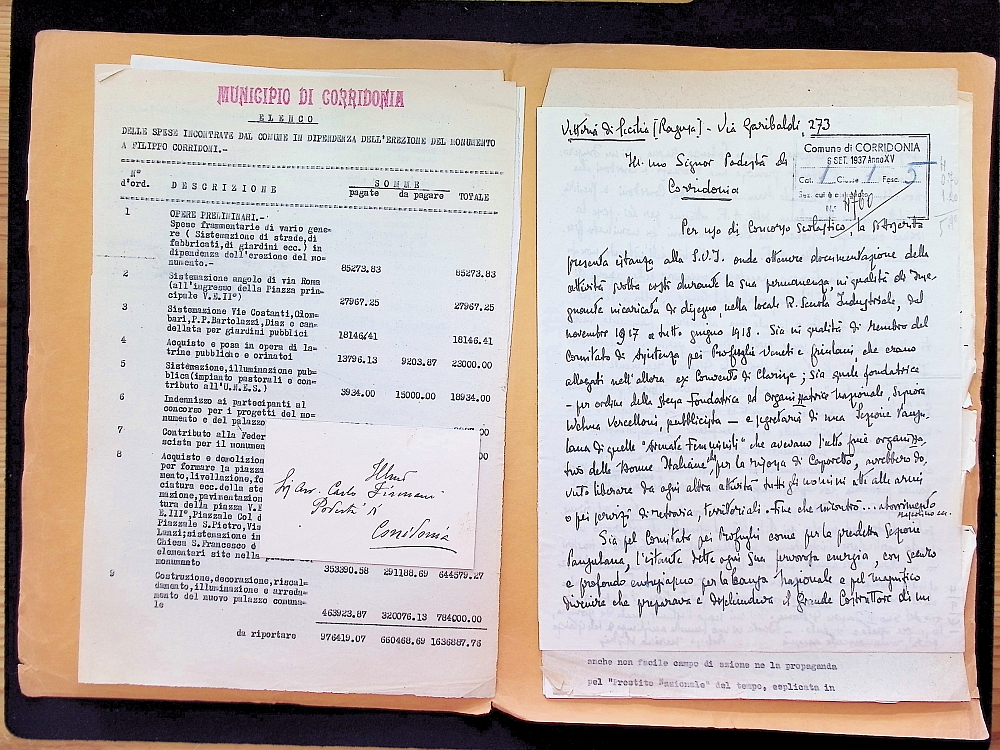 MUNICIPIO DI CORRIDONIA
ELENCO
DELLE SPESE INCONTRATE DAL COMUNE IN DIPENDENZA DELL'EREZIONE DEL MONUMENTO
A FILIPPO CORRIDONI.-
N°
d'ord.
DESCRIZIONE
SOMME
pagate da pagare TOTALE
1
OPERE PRELIMINARI.-
Spese frammentarie di vario gene=
re ( Sistemazione di strade,di
fabbricati,di giardini ecc.) in
dipendenza dell'erezione del mo=
numento.-
85273.83 85273.83
2
Sistemazione angolo di via Roma
(all'ingresso della Piazza prin=
cipale V.E.II°)
27967.25 27967.25
3
Sistemazione Vie Costanti,Olom=
bari,P.P.Bartolazzi,Diaz e can=
dellata per giardini pubblici
18146.41 18146.41
4
Acquisto e posa in opera di la=
trine pubbliche e orinatoi
13796.13 9203.87 23000.00
5
Sistemazione,illuminazione pub=
blica(impianto pastorali e con=
tributo all'U.N.E.S.)
3934.00 15000.00 18934.00
6
Indennizzo ai partecipanti al
concorso per i progetti del mo=
numento e del palazzo
7
Contributo alla Feder
scista per il monumen
8
Acquisto e demolizion
per formare la piazza
mento,livellazione,fo
ciatura ecc.della ste
mazione,pavimentazion
tura della piazza V.E
E.III°,Piazzale Col d
Piazzale S.Pietro,Vis
Lanzi;sistemazione in
Chiesa S.Francesco e
elementari site nella
monumento
353390.58 291188.69 644579.27
9
Costruzione,decorazione,riscal=
damento,illuminazione e arreda=
mento del nuovo palazzo comuna=
le
463923.87 320076.13 784000.00
da riportare 976419.07 660468.69 1636887.76
Sig Avv. Carlo
Podestà di
Corridonia
Vittoria di Sicilia (Ragusa) - Via Garibaldi 273
Ill.mo Signor Podestà di
Corridonia
Comune di CORRIDONIA
6 SET. 1937 Anno XV
Cat. 1 Classe 1 Fasc. 5
N. 4760
Per uso di Concorso Scolastico, la sottoscritta
presenta istanza alla S.V.I. onde ottenere documentazione della
attività svolta costì durante la sua permanenza, in qualità di Inse=
gnante incaricata di disegno, nella locale R. Scuola Industriale, dal
novembre 1917 a tutto giugno 1918. Sia in qualità di Membro del
Comitato di Assistenza pei Profughi Veneti e friulani, che erano
allogati nell'allora ex Convento di Clarisse; Sia quale fondatrice
- per ordine della stessa Fondatrice ed Organizzatrice nazionale, Signora
Vercelloni, pubblicista — e segretaria di una Sezione Pausu=
lana di quelle "Armate Femminili" che avevano l'alto fine
delle Donne Italiane, per la riscossa di Caporetto, avrebbero do=
vuto liberare da ogni altra attività tutti gli uomini atti alle armi
o pei servizi di retrovia, territoriali.
Sia pel Comitato pei Profughi come per la predetta Sezione
Pausulana, l'istante dette ogni sua fervorosa energia, con
e profondo entusiasmo per la Causa Nazionale e pel magnifico
divenire che preparava e dischiudeva il Grande Costruttore di un
anche non facile campo di azione ne la propaganda
pel "Prestito Nazionale" del tempo, esplicata in